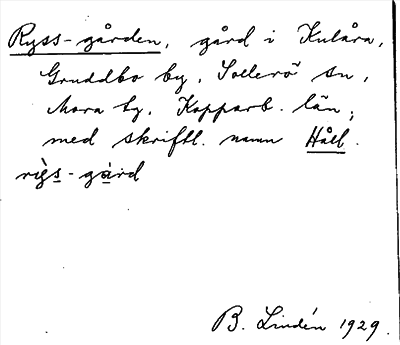 Ryss-gården, gård i Kulåra,
Gruddbo by, Sollerö sn,
Mora tg, Kopparb. län;
med skriftl. namn Håll.
rìs-gárd
B. Lindén 1929.